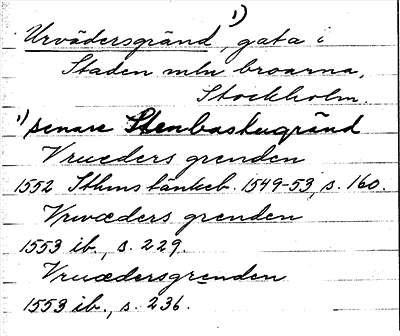 Urvädersgränd 1), gata i
Staden mln broarna,
Stockholm.
1) senare Stenbastugränd
Vrueders grenden
1552 Sthms tänkeb. 1549-53, s. 160.
Vrwæders grenden
1553 ib., s. 229.
Vruædersgrenden
1553 ib., s. 236.